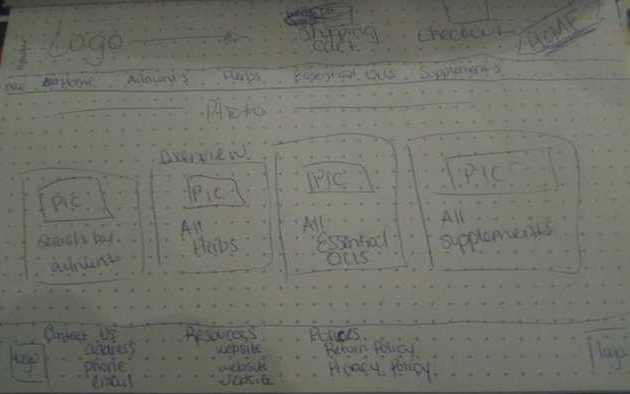 Logo
Shipping
cart
checkout
HOME
Home
Ailments
Herbs
Essential Oils
Supplements
Photo
overview
PIC
search by
ailment
PIC
All
Herbs
PIC
All
Essential
Oils
PIC
All
Supplements
Contact Us
address
phone
email
Resources
website
website
website
Policies
Return Policy
Privacy Policy
logo
logo